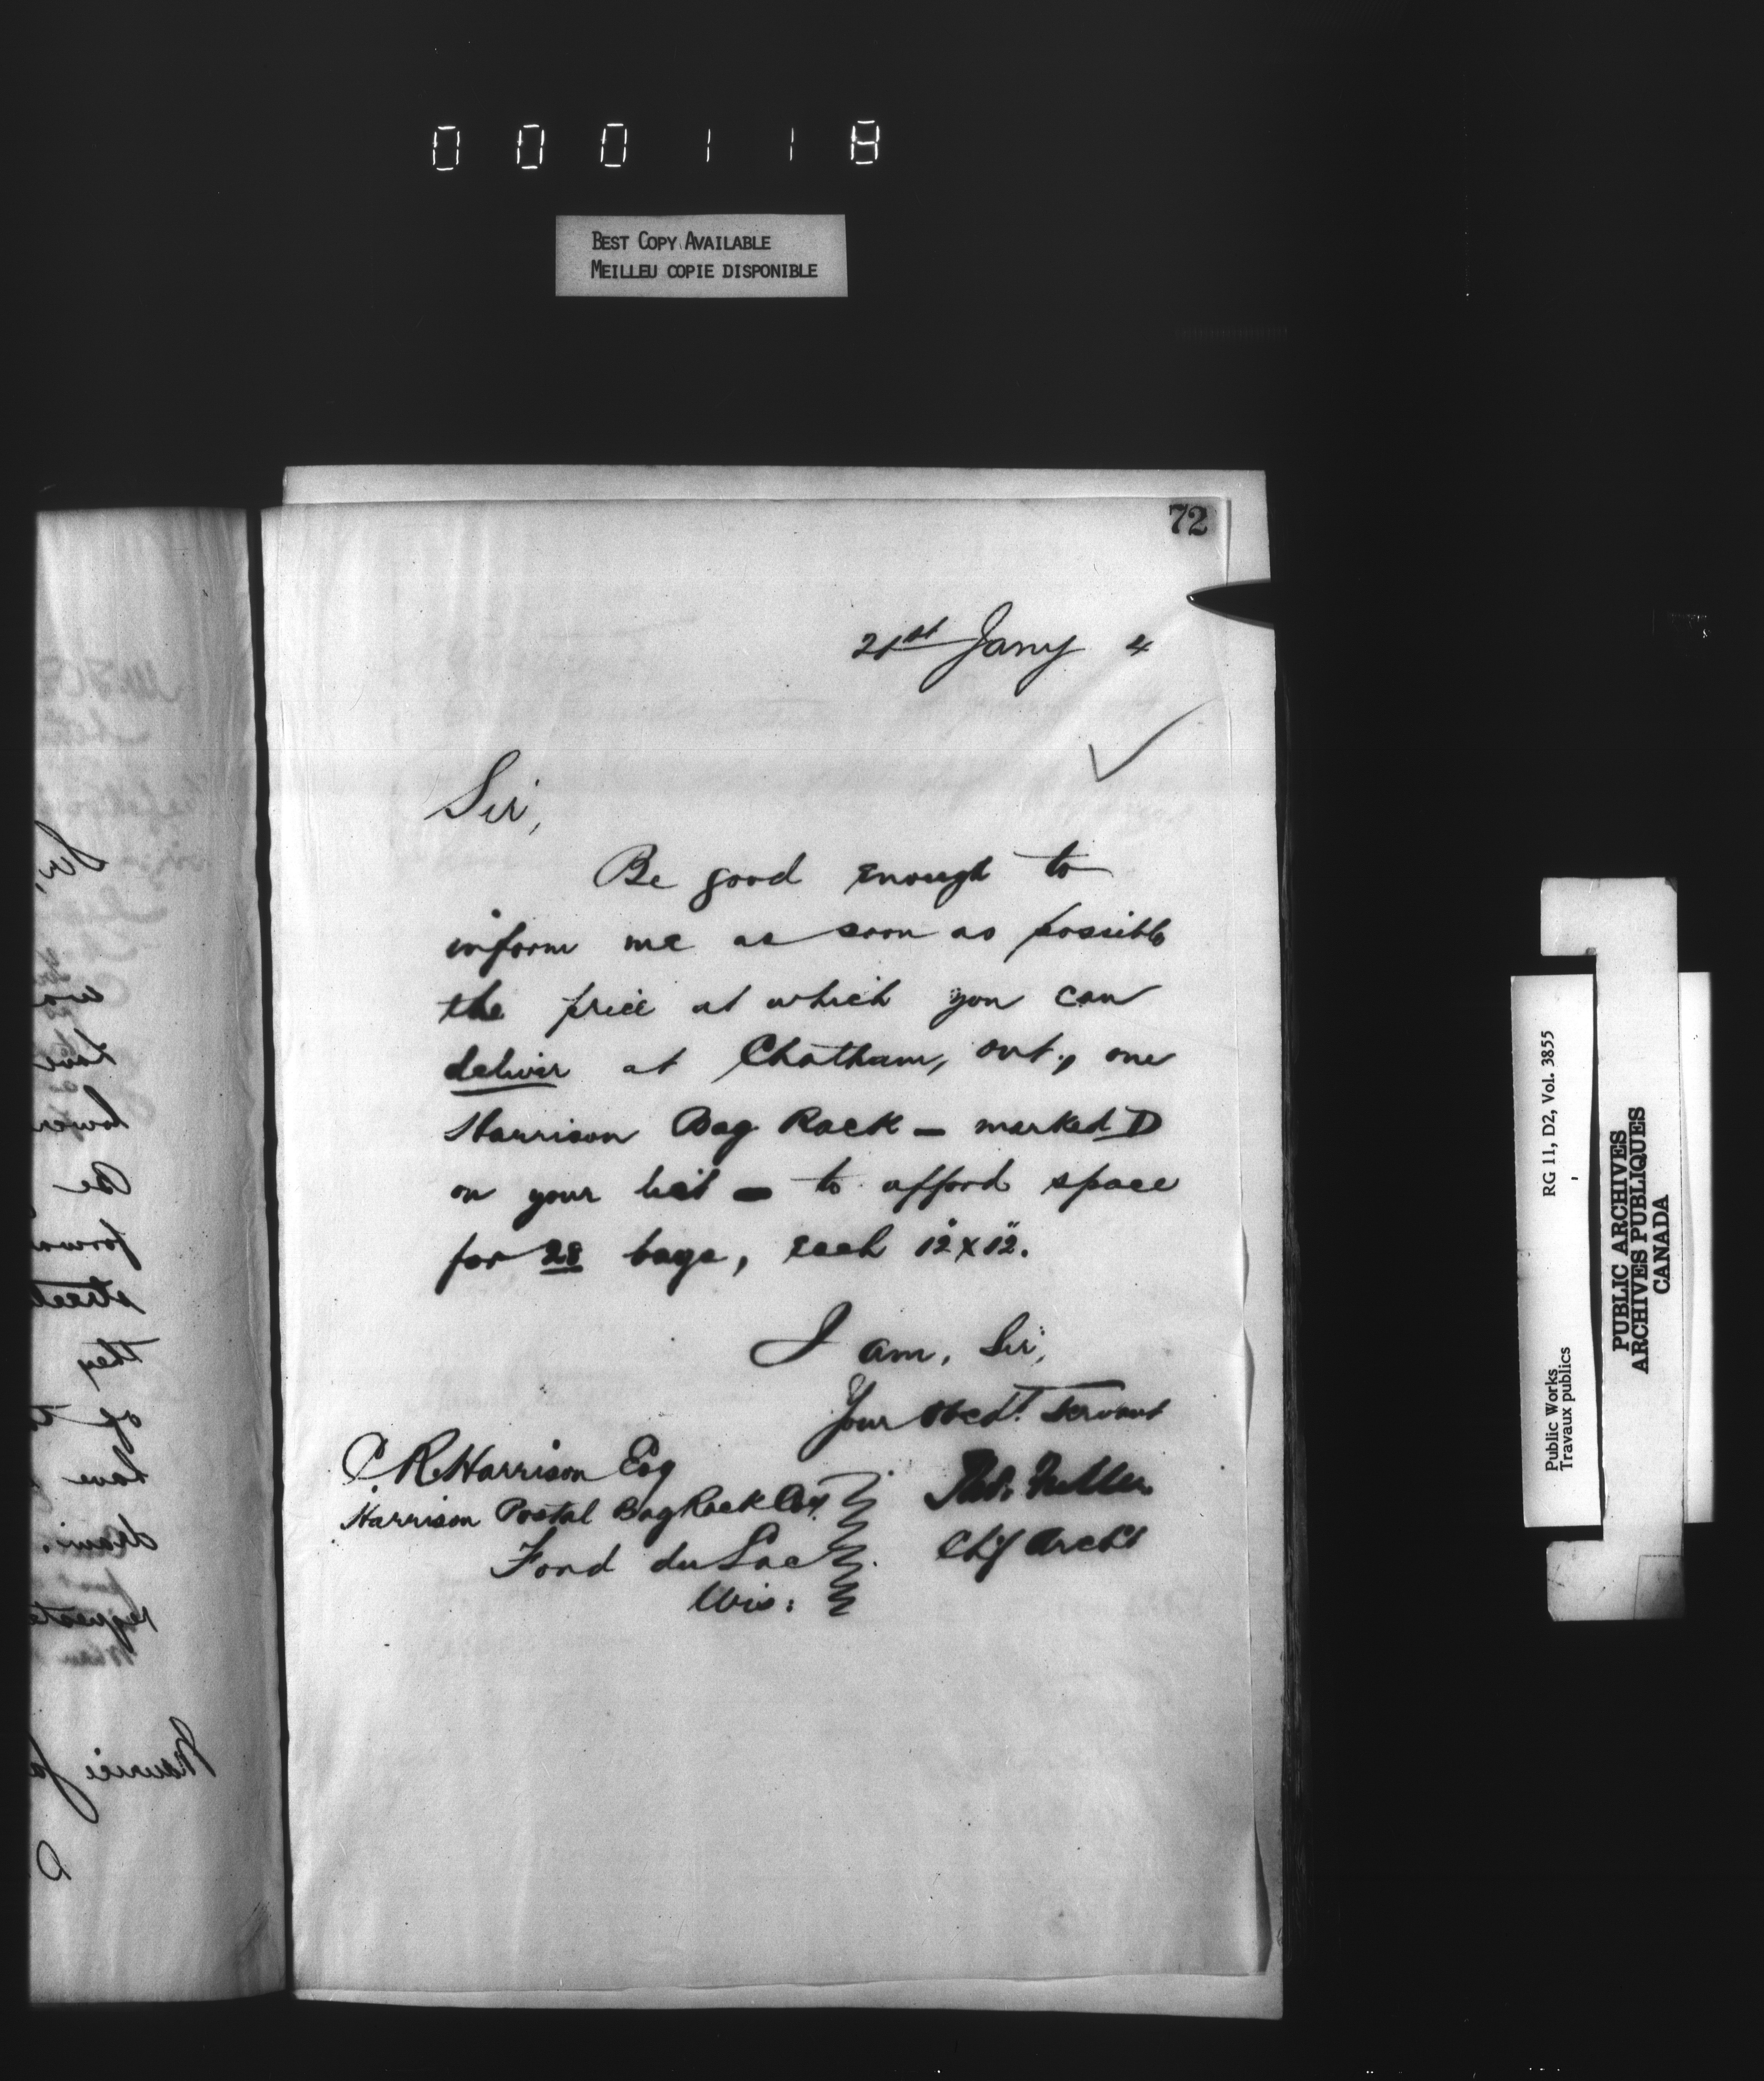 000118
BEST COPY AVAILABLE
MEILLEU COPIE DISPONIBLE
72
21st Jany 4
Sir,
Be good enough to
inform me as soon as possible
the price at which you can
deliver at Chatham, Ont., one
Harrison Bag Rack – marked D
on your list – to afford space
for 28 bags, each 12"x12".
I am, Sir,
Your obedt. servant
Thos. Fuller
Chf Archt
C R Harrison Esq
Harrison Postal Bag Rack Coy.
Fond du Lac
Wis:
RG 11, D2, Vol. 3855
Public Works
Travaux publics
PUBLIC ARCHIVES
ARCHIVES PUBLIQUES
CANADA
Sir,
have
Be
street
they
of
have
drain.
Maurice